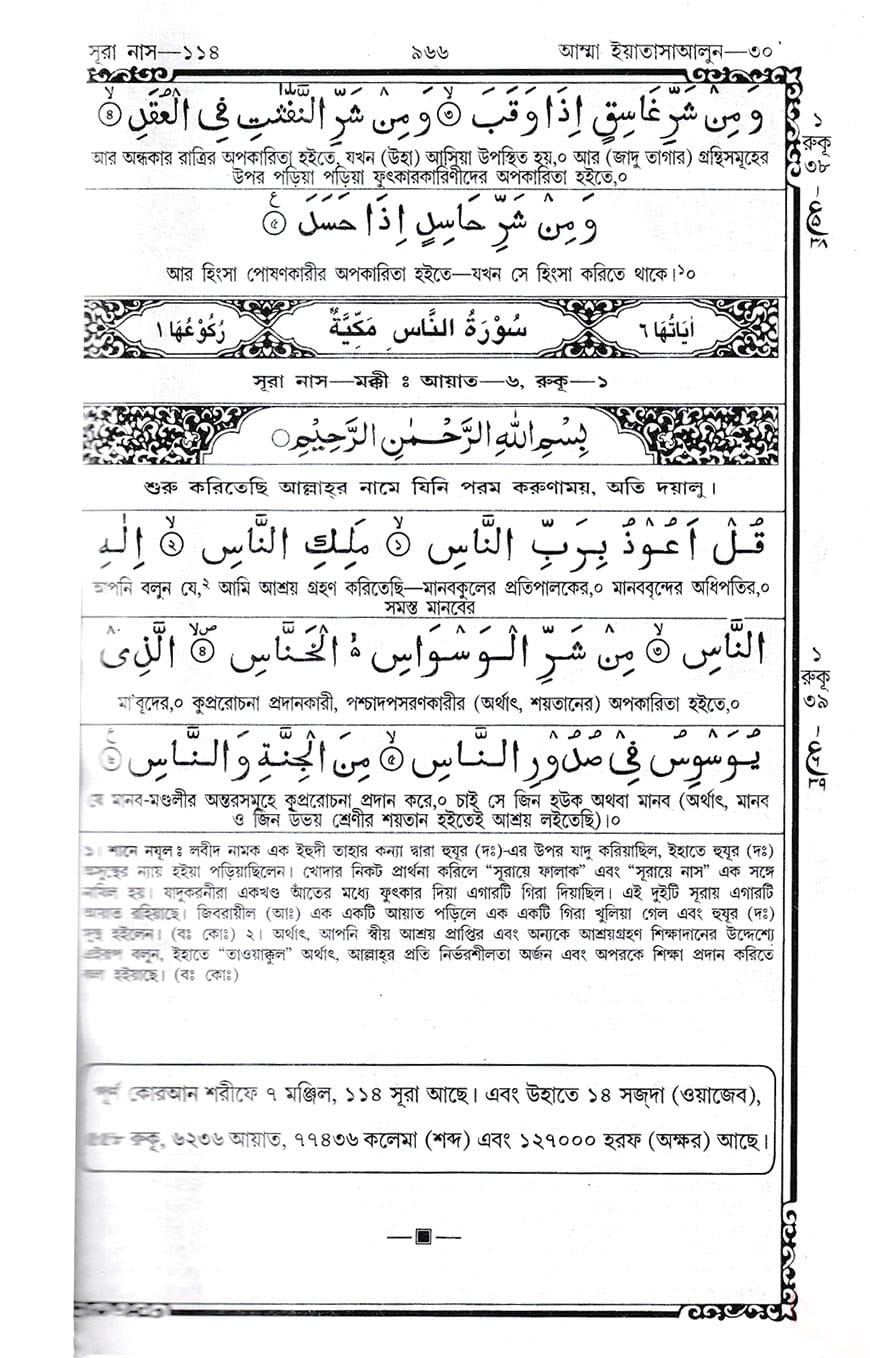 সূরা নাস—১১৪ ৯৬৬ আম্মা ইয়াতাসাআলুন—৩০
وَ مِنْ شَرِّ غَاسِقٍ اِذَا وَقَبَ ۙ﴿۳﴾ وَ مِنْ شَرِّ النَّفّٰثٰتِ فِی الْعُقَدِ ۙ﴿۴﴾
আর অন্ধকার রাত্রির অপকারিতা হইতে, যখন (উহা) আসিয়া উপস্থিত হয়,০ আর (জাদু তাগার) গ্রন্থিসমূহের
উপর পড়িয়া পড়িয়া ফুৎকারকারিণীদের অপকারিতা হইতে,০
১
রুকূ
৩৮
وَ مِنْ شَرِّ حَاسِدٍ اِذَا حَسَدَ ﴿۵﴾
আর হিংসা পোষণকারীর অপকারিতা হইতে—যখন সে হিংসা করিতে থাকে।১০
اٰيَاتُهَا ٦ سُوْرَةُ النَّاسِ مَكِّيَّةٌ رُكُوْعُهَا ١
সূরা নাস—মক্কী ঃ আয়াত—৬, রুকূ—১
بِسْمِ اللّٰهِ الرَّحْمٰنِ الرَّحِيْمِ
শুরু করিতেছি আল্লাহ্‌র নামে যিনি পরম করুণাময়, অতি দয়ালু।
قُلْ اَعُوْذُ بِرَبِّ النَّاسِ ۙ﴿۱﴾ مَلِكِ النَّاسِ ۙ﴿۲﴾ اِلٰهِ
আপনি বলুন যে,২ আমি আশ্রয় গ্রহণ করিতেছি—মানবকুলের প্রতিপালকের,০ মানববৃন্দের অধিপতির,০
সমস্ত মানবের
النَّاسِ ۙ﴿۳﴾ مِنْ شَرِّ الْوَسْوَاسِ ۙ الْخَنَّاسِ ﴿۴﴾ الَّذِیْ
মা'বূদের,০ কুপ্ররোচনা প্রদানকারী, পশ্চাদপসরণকারীর (অর্থাৎ, শয়তানের) অপকারিতা হইতে,০
১
রুকূ
৩৯
يُوَسْوِسُ فِیْ صُدُوْرِ النَّاسِ ۙ﴿۵﴾ مِنَ الْجِنَّةِ وَالنَّاسِ ﴿۶﴾
যে মানব-মণ্ডলীর অন্তরসমূহে কুপ্ররোচনা প্রদান করে,০ চাই সে জিন হউক অথবা মানব (অর্থাৎ, মানব
ও জিন উভয় শ্রেণীর শয়তান হইতেই আশ্রয় লইতেছি)।০
১। শানে নযূল ঃ লবীদ নামক এক ইহুদী তাহার কন্যা দ্বারা হুযূর (দঃ)-এর উপর যাদু করিয়াছিল, ইহাতে হুযূর (দঃ)
অসুস্থের ন্যায় হইয়া পড়িয়াছিলেন। খোদার নিকট প্রার্থনা করিলে "সূরায়ে ফালাক" এবং "সূরায়ে নাস" এক সঙ্গে
নাযিল হয়। যাদুকরনীরা একখণ্ড আঁতের মধ্যে ফুৎকার দিয়া এগারটি গিরা দিয়াছিল। এই দুইটি সূরায় এগারটি
আয়াত রহিয়াছে। জিবরায়ীল (আঃ) এক একটি আয়াত পড়িলে এক একটি গিরা খুলিয়া গেল এবং হুযূর (দঃ)
সুস্থ হইলেন। (বঃ কোঃ) ২। অর্থাৎ, আপনি স্বীয় আশ্রয় প্রাপ্তির এবং অন্যকে আশ্রয়গ্রহণ শিক্ষাদানের উদ্দেশ্যে
এইরূপ বলুন, ইহাতে "তাওয়াক্কুল" অর্থাৎ, আল্লাহ্‌র প্রতি নির্ভরশীলতা অর্জন এবং অপরকে শিক্ষা প্রদান করিতে
বলা হইয়াছে। (বঃ কোঃ)
পূর্ণ কোরআন শরীফে ৭ মঞ্জিল, ১১৪ সূরা আছে। এবং উহাতে ১৪ সজ্‌দা (ওয়াজেব),
৫৫৮ রুকূ, ৬২৩৬ আয়াত, ৭৭৪৩৬ কলেমা (শব্দ) এবং ১২৭০০০ হরফ (অক্ষর) আছে।